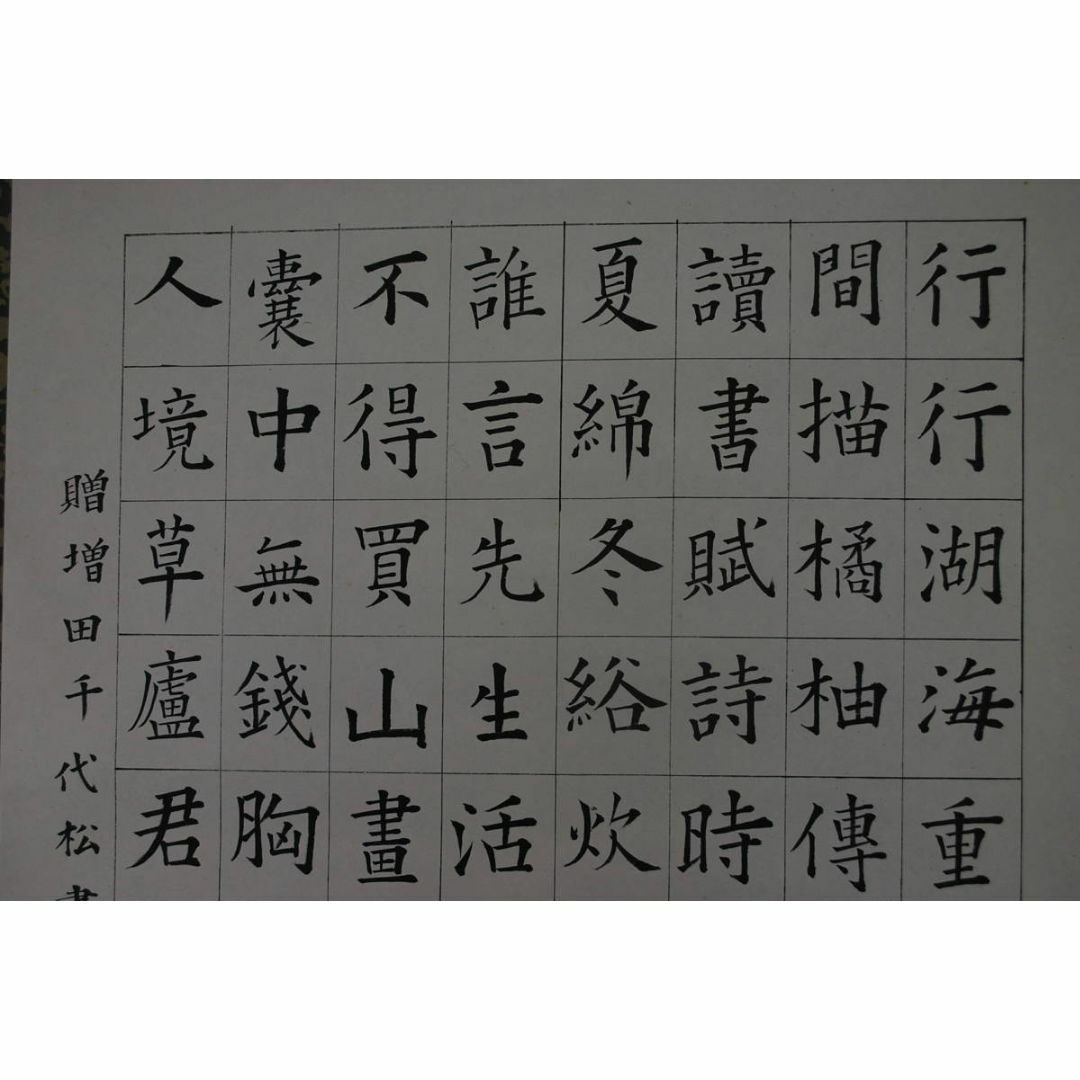 行行湖海重
間描橘柚傳
讀書賦詩時
夏綿冬綌炊
誰言先生活
不得買山畫
囊中無錢胸
人境草廬君
贈増田千代松